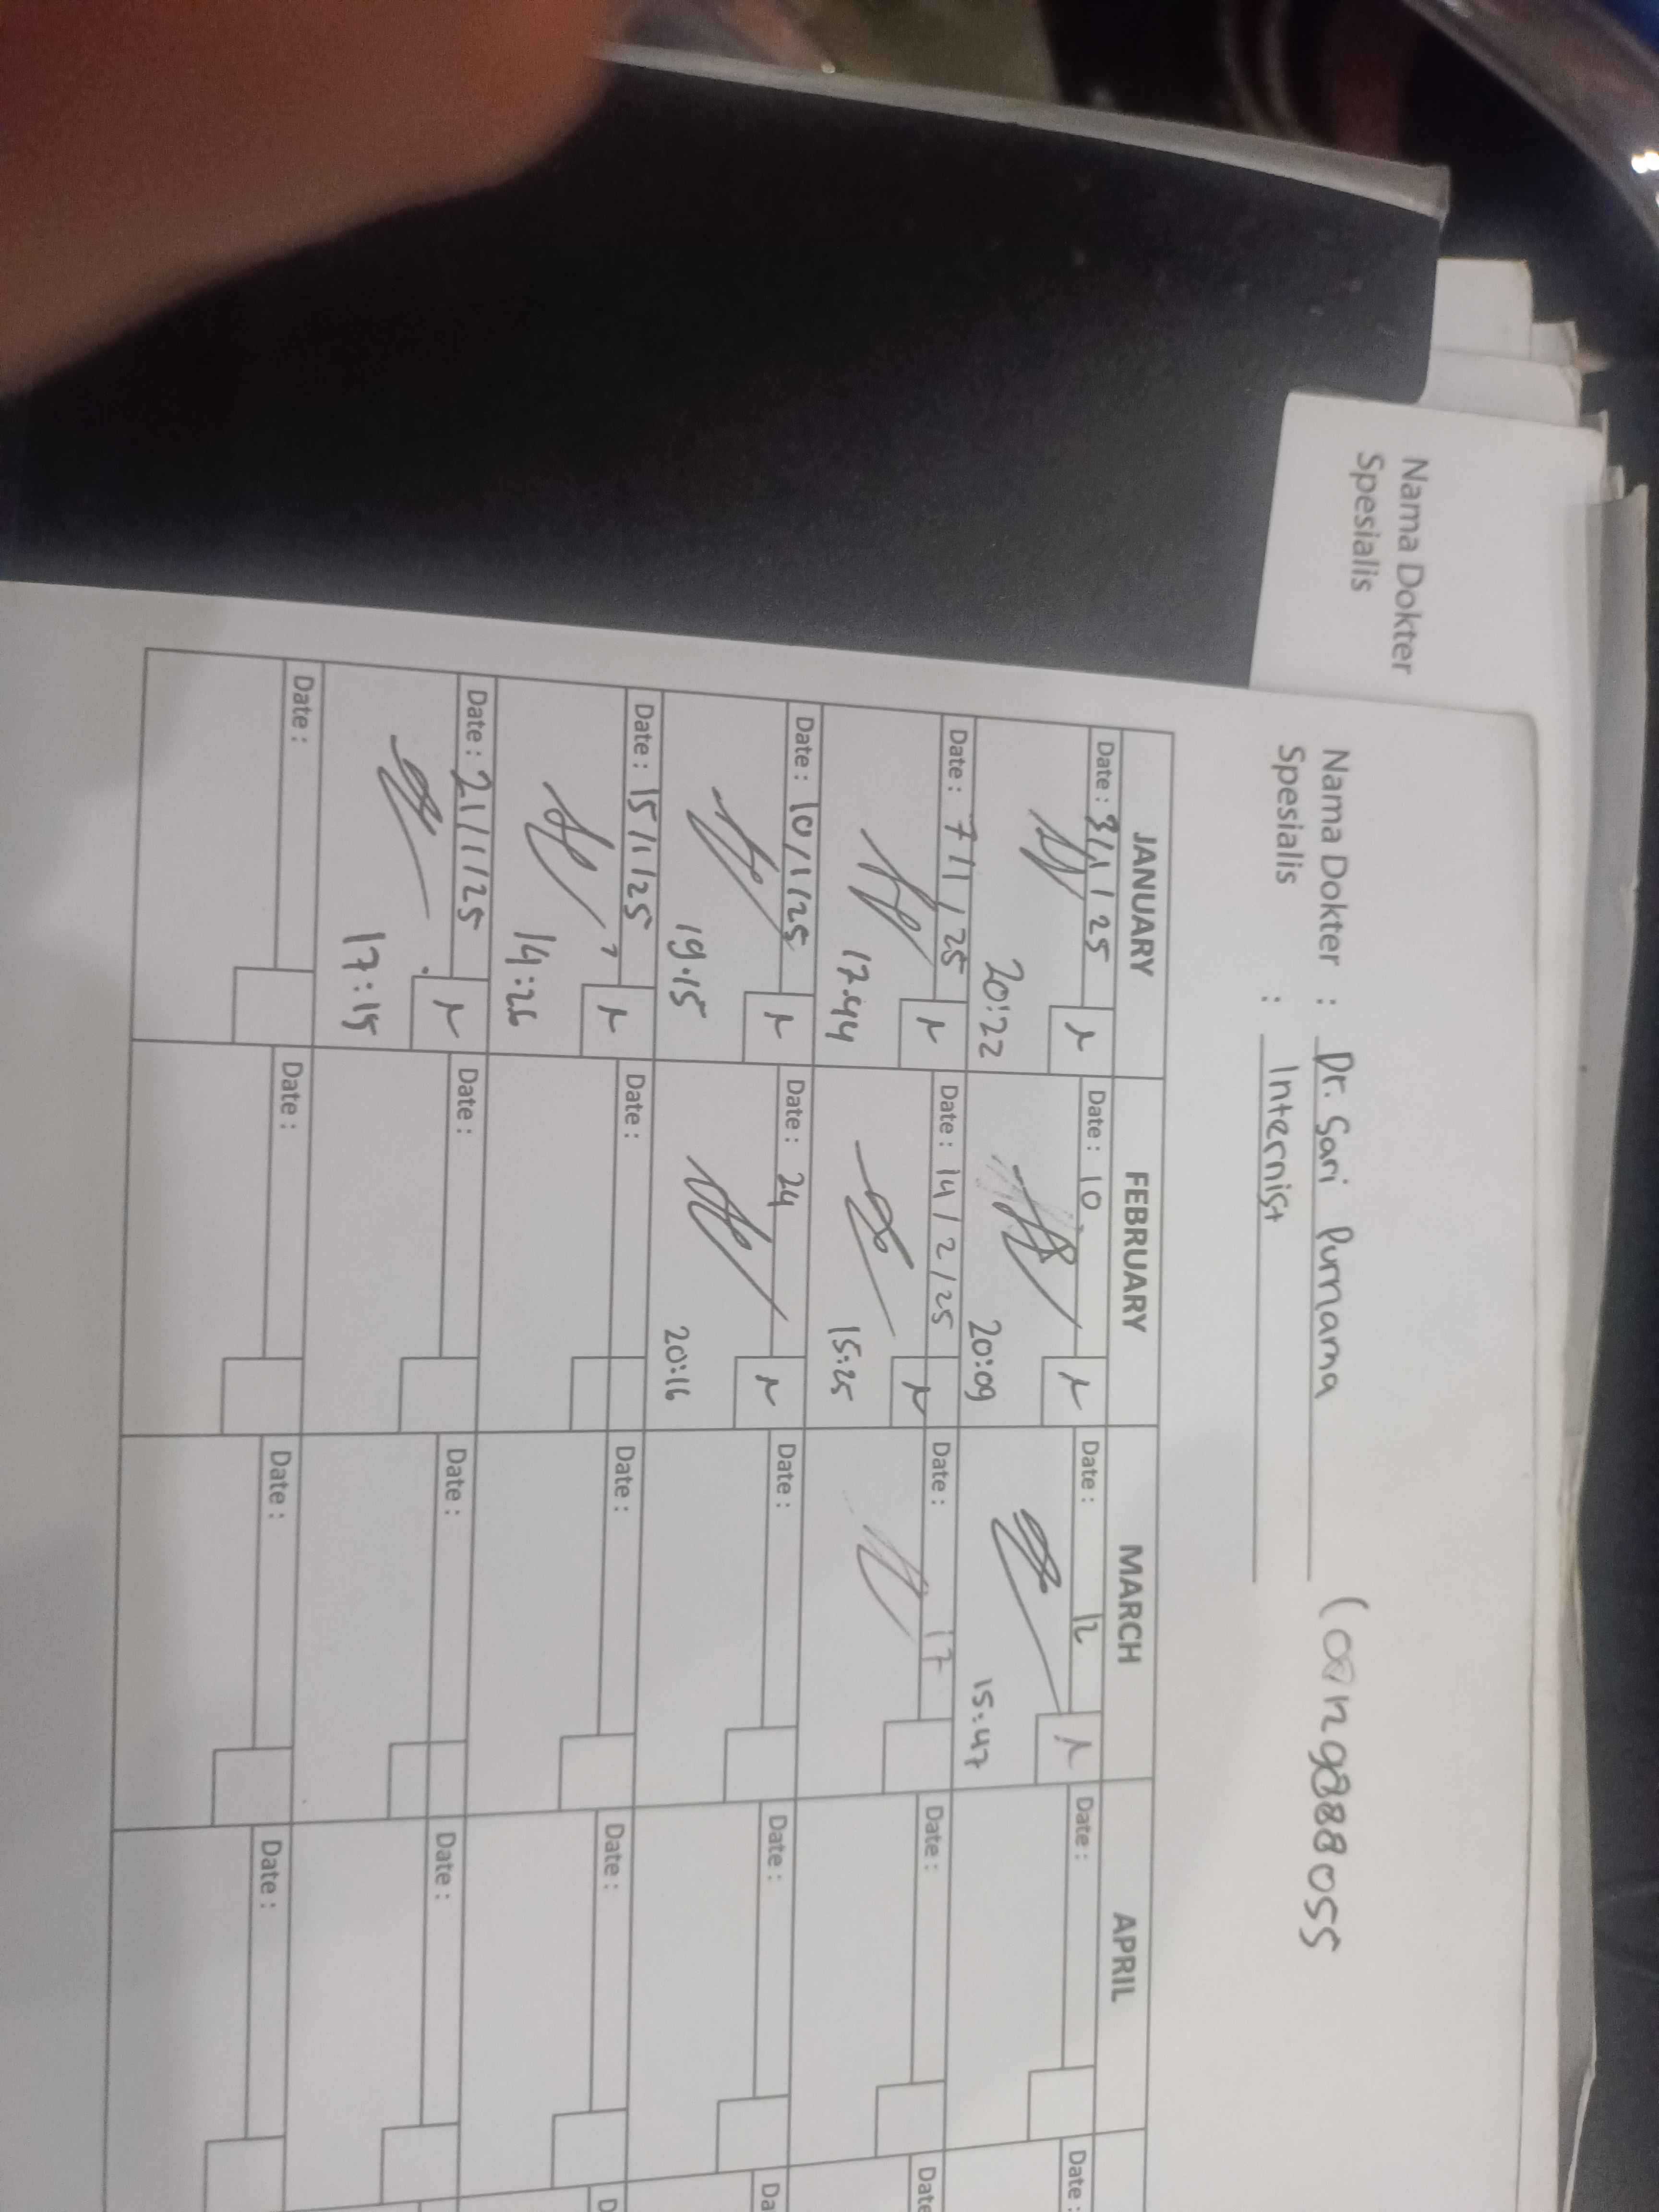 Nama Dokter
Spesialis
Nama Dokter : Dr. Sari Purnama
Spesialis : Internist
JANUARY FEBRUARY MARCH APRIL
Date : 3/1/25 Date : 10 Date : 12 Date : Date :
20:22 20:09 15:47
Date : 7/1/25 Date : 14/2/25 Date : 17 Date : Date
17.44 15:25
Date : 10/1/25 Date : 24 Date : Date : Da
19.15 20:16
Date : 15/1/25 Date : Date : Date : D
14:26
Date : 21/1/25 Date : Date : Date :
17:15
Date : Date : Date : Date :